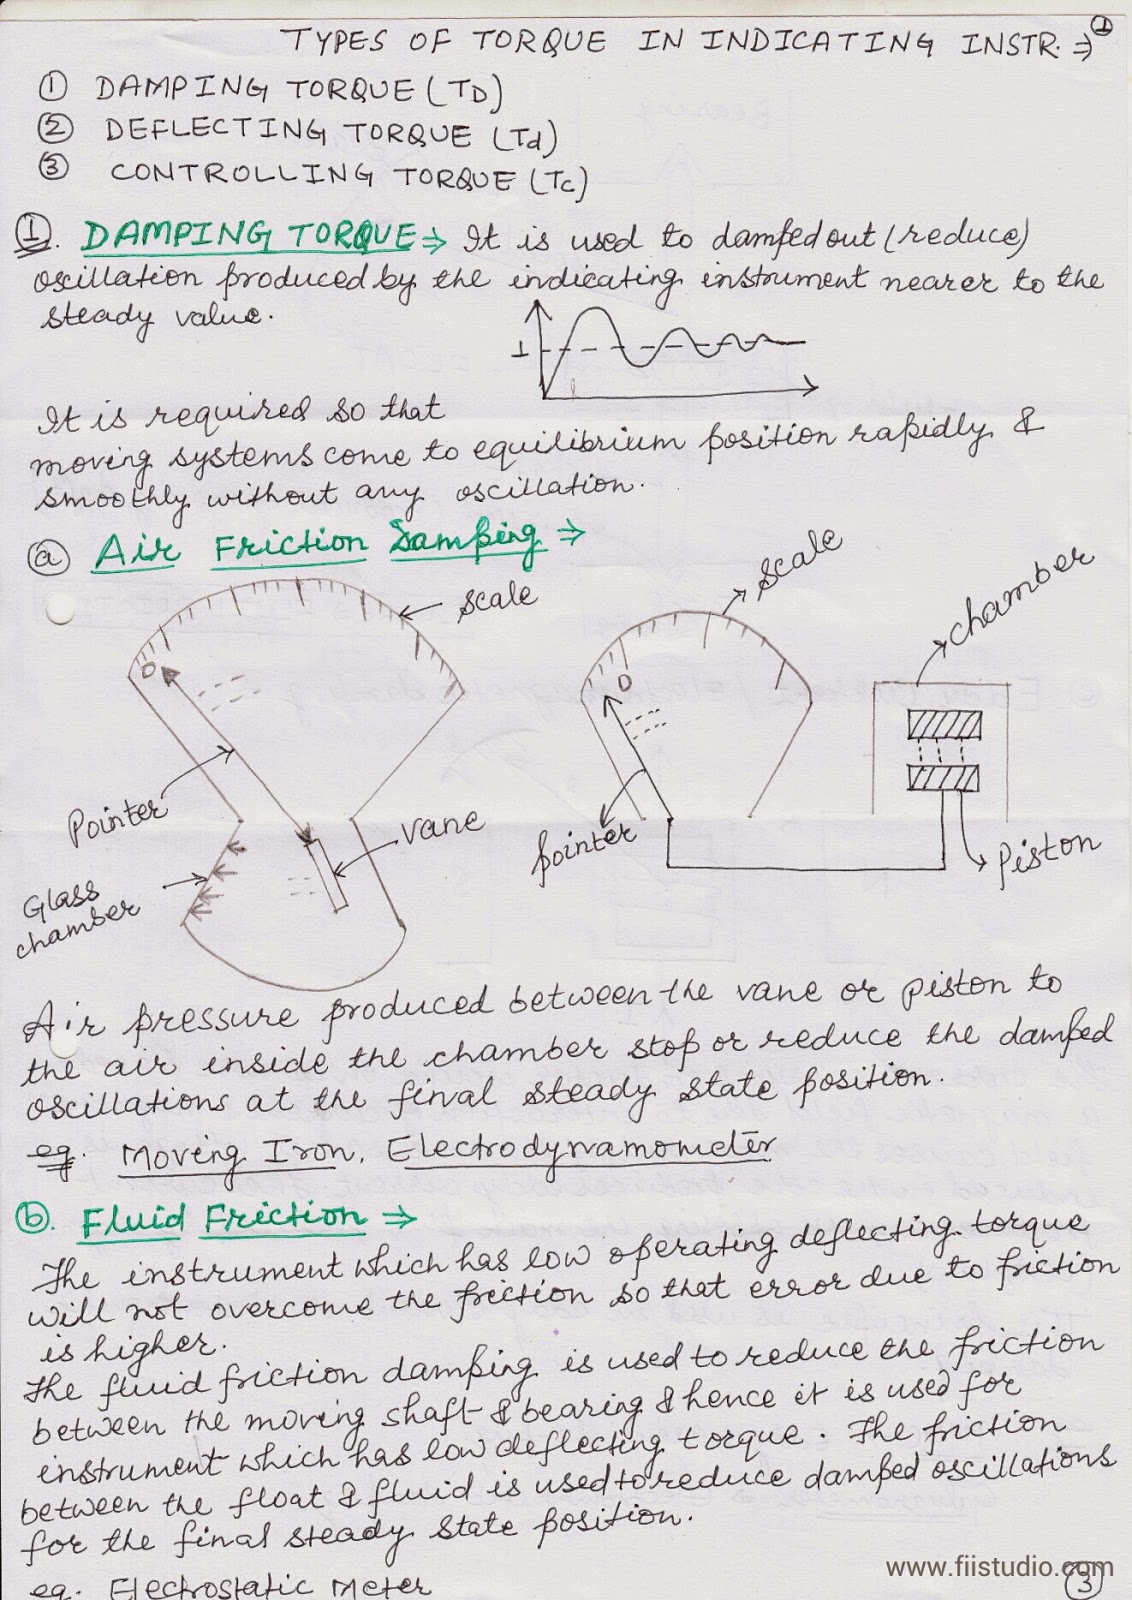 ①
TYPES OF TORQUE IN INDICATING INSTR. ⇒
① DAMPING TORQUE (TD)
② DEFLECTING TORQUE (Td)
③ CONTROLLING TORQUE (Tc)
①. DAMPING TORQUE ⇒ It is used to damped out (reduce)
oscillation produced by the indicating instrument nearer to the
steady value.
1
It is required so that
moving systems come to equilibrium position rapidly &
smoothly without any oscillation.
ⓐ Air Friction Damping ⇒
scale
scale
chamber
0
0
Pointer
vane
pointer
Piston
Glass
chamber
Air pressure produced between the vane or piston to
the air inside the chamber stop or reduce the damped
oscillations at the final steady state position.
eg. Moving Iron, Electrodynamometer
ⓑ. Fluid Friction ⇒
The instrument which has low operating deflecting torque
will not overcome the friction so that error due to friction
is higher.
The fluid friction damping is used to reduce the friction
between the moving shaft & bearing & hence it is used for
instrument which has low deflecting torque. The friction
between the float & fluid is used to reduce damped oscillations
for the final steady state position.
eg. Electrostatic Meter
www.fiistudio.com
③